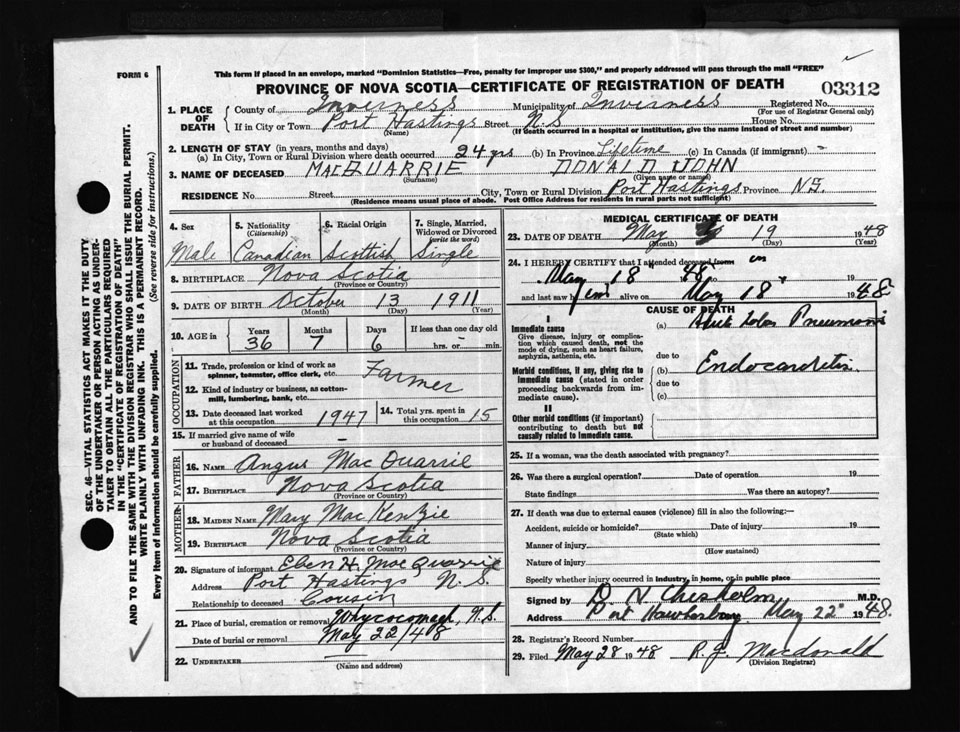 FORM 6
This form if placed in an envelope, marked "Dominion Statistics—Free, penalty for improper use $300," and properly addressed will pass through the mail "FREE"
PROVINCE OF NOVA SCOTIA—CERTIFICATE OF REGISTRATION OF DEATH 03312
1. PLACE OF DEATH
County of Inverness Municipality of Inverness Registered No.
(For use of Registrar General only)
If in City or Town Port Hastings Street N.S House No.
(Name) (If death occurred in a hospital or institution, give the name instead of street and number)
2. LENGTH OF STAY (in years, months and days)
(a) In City, Town or Rural Division where death occurred 24 yrs (b) In Province Lifetime (c) In Canada (if immigrant) -
3. NAME OF DECEASED MACQUARRIE DONALD JOHN
(Surname) (Given name or names)
RESIDENCE No. Street City, Town or Rural Division Port Hastings Province N.S.
(Residence means usual place of abode. Post Office Address for residents in rural parts not sufficient)
SEC. 46—VITAL STATISTICS ACT MAKES IT THE DUTY
OF THE UNDERTAKER OR PERSON ACTING AS UNDER-
TAKER TO OBTAIN ALL THE PARTICULARS REQUIRED
IN THE "CERTIFICATE OF REGISTRATION OF DEATH"
AND TO FILE THE SAME WITH THE DIVISION REGISTRAR WHO SHALL ISSUE THE BURIAL PERMIT.
WRITE PLAINLY WITH UNFADING INK. THIS IS A PERMANENT RECORD.
Every item of information should be carefully supplied. (See reverse side for instructions.)
4. Sex 5. Nationality (Citizenship) 6. Racial Origin 7. Single, Married, Widowed or Divorced (write the word)
Male Canadian Scottish Single
8. BIRTHPLACE Nova Scotia
(Province or Country)
9. DATE OF BIRTH October 13 1911
(Month) (Day) (Year)
10. AGE in Years Months Days If less than one day old
36 7 6 hrs. or min.
OCCUPATION
11. Trade, profession or kind of work as spinner, teamster, office clerk, etc. Farmer
12. Kind of industry or business, as cotton-mill, lumbering, bank, etc.
13. Date deceased last worked at this occupation 1947 14. Total yrs. spent in this occupation 15
15. If married give name of wife or husband of deceased -
FATHER
16. NAME Angus MacQuarrie
17. BIRTHPLACE Nova Scotia
(Province or Country)
MOTHER
18. MAIDEN NAME Mary MacKenzie
19. BIRTHPLACE Nova Scotia
(Province or Country)
20. Signature of informant Eben H. MacQuarrie
Address Port Hastings N.S.
Relationship to deceased Cousin
21. Place of burial, cremation or removal Whycocomagh, N.S.
Date of burial or removal May 22/48
22. UNDERTAKER
(Name and address)
MEDICAL CERTIFICATE OF DEATH
23. DATE OF DEATH May 19 1948
(Month) (Day) (Year)
24. I HEREBY CERTIFY that I attended deceased from on
May 18" 48 to 19
and last saw him alive on May 18" 1948
CAUSE OF DEATH
I
Immediate cause
Give disease, injury or complication which caused death, not the mode of dying, such as heart failure, asphyxia, asthenia, etc.
(a) Lobar Pneumonia
due to
Morbid conditions, if any, giving rise to immediate cause (stated in order proceeding backwards from immediate cause).
(b) Endocarditis
due to
(c)
II
Other morbid conditions (if important) contributing to death but not causally related to immediate cause.
25. If a woman, was the death associated with pregnancy?
26. Was there a surgical operation? Date of operation 19
State findings Was there an autopsy?
27. If death was due to external causes (violence) fill in also the following:—
Accident, suicide or homicide? Date of injury 19
(State which)
Manner of injury
(How sustained)
Nature of injury
Specify whether injury occurred in industry, in home, or in public place
Signed by D N Chisholm M.D.
Address Port Hawkesbury May 22" 1948.
28. Registrar's Record Number
29. Filed May 28 1948 R. J. Macdonald
(Division Registrar)